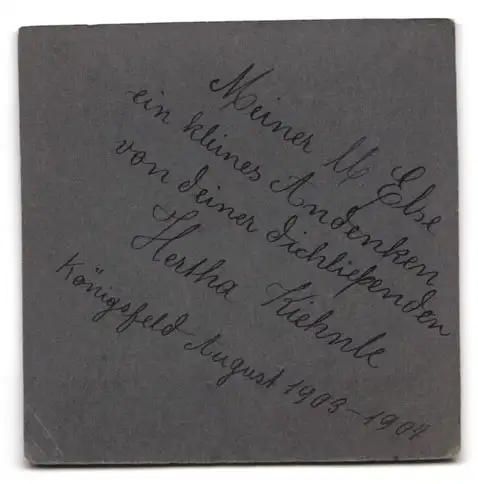 Meiner M Else
ein kleines Andenken
von deiner dichliebenden
Hertha Kiehnle
Königsfeld August 1903-1904